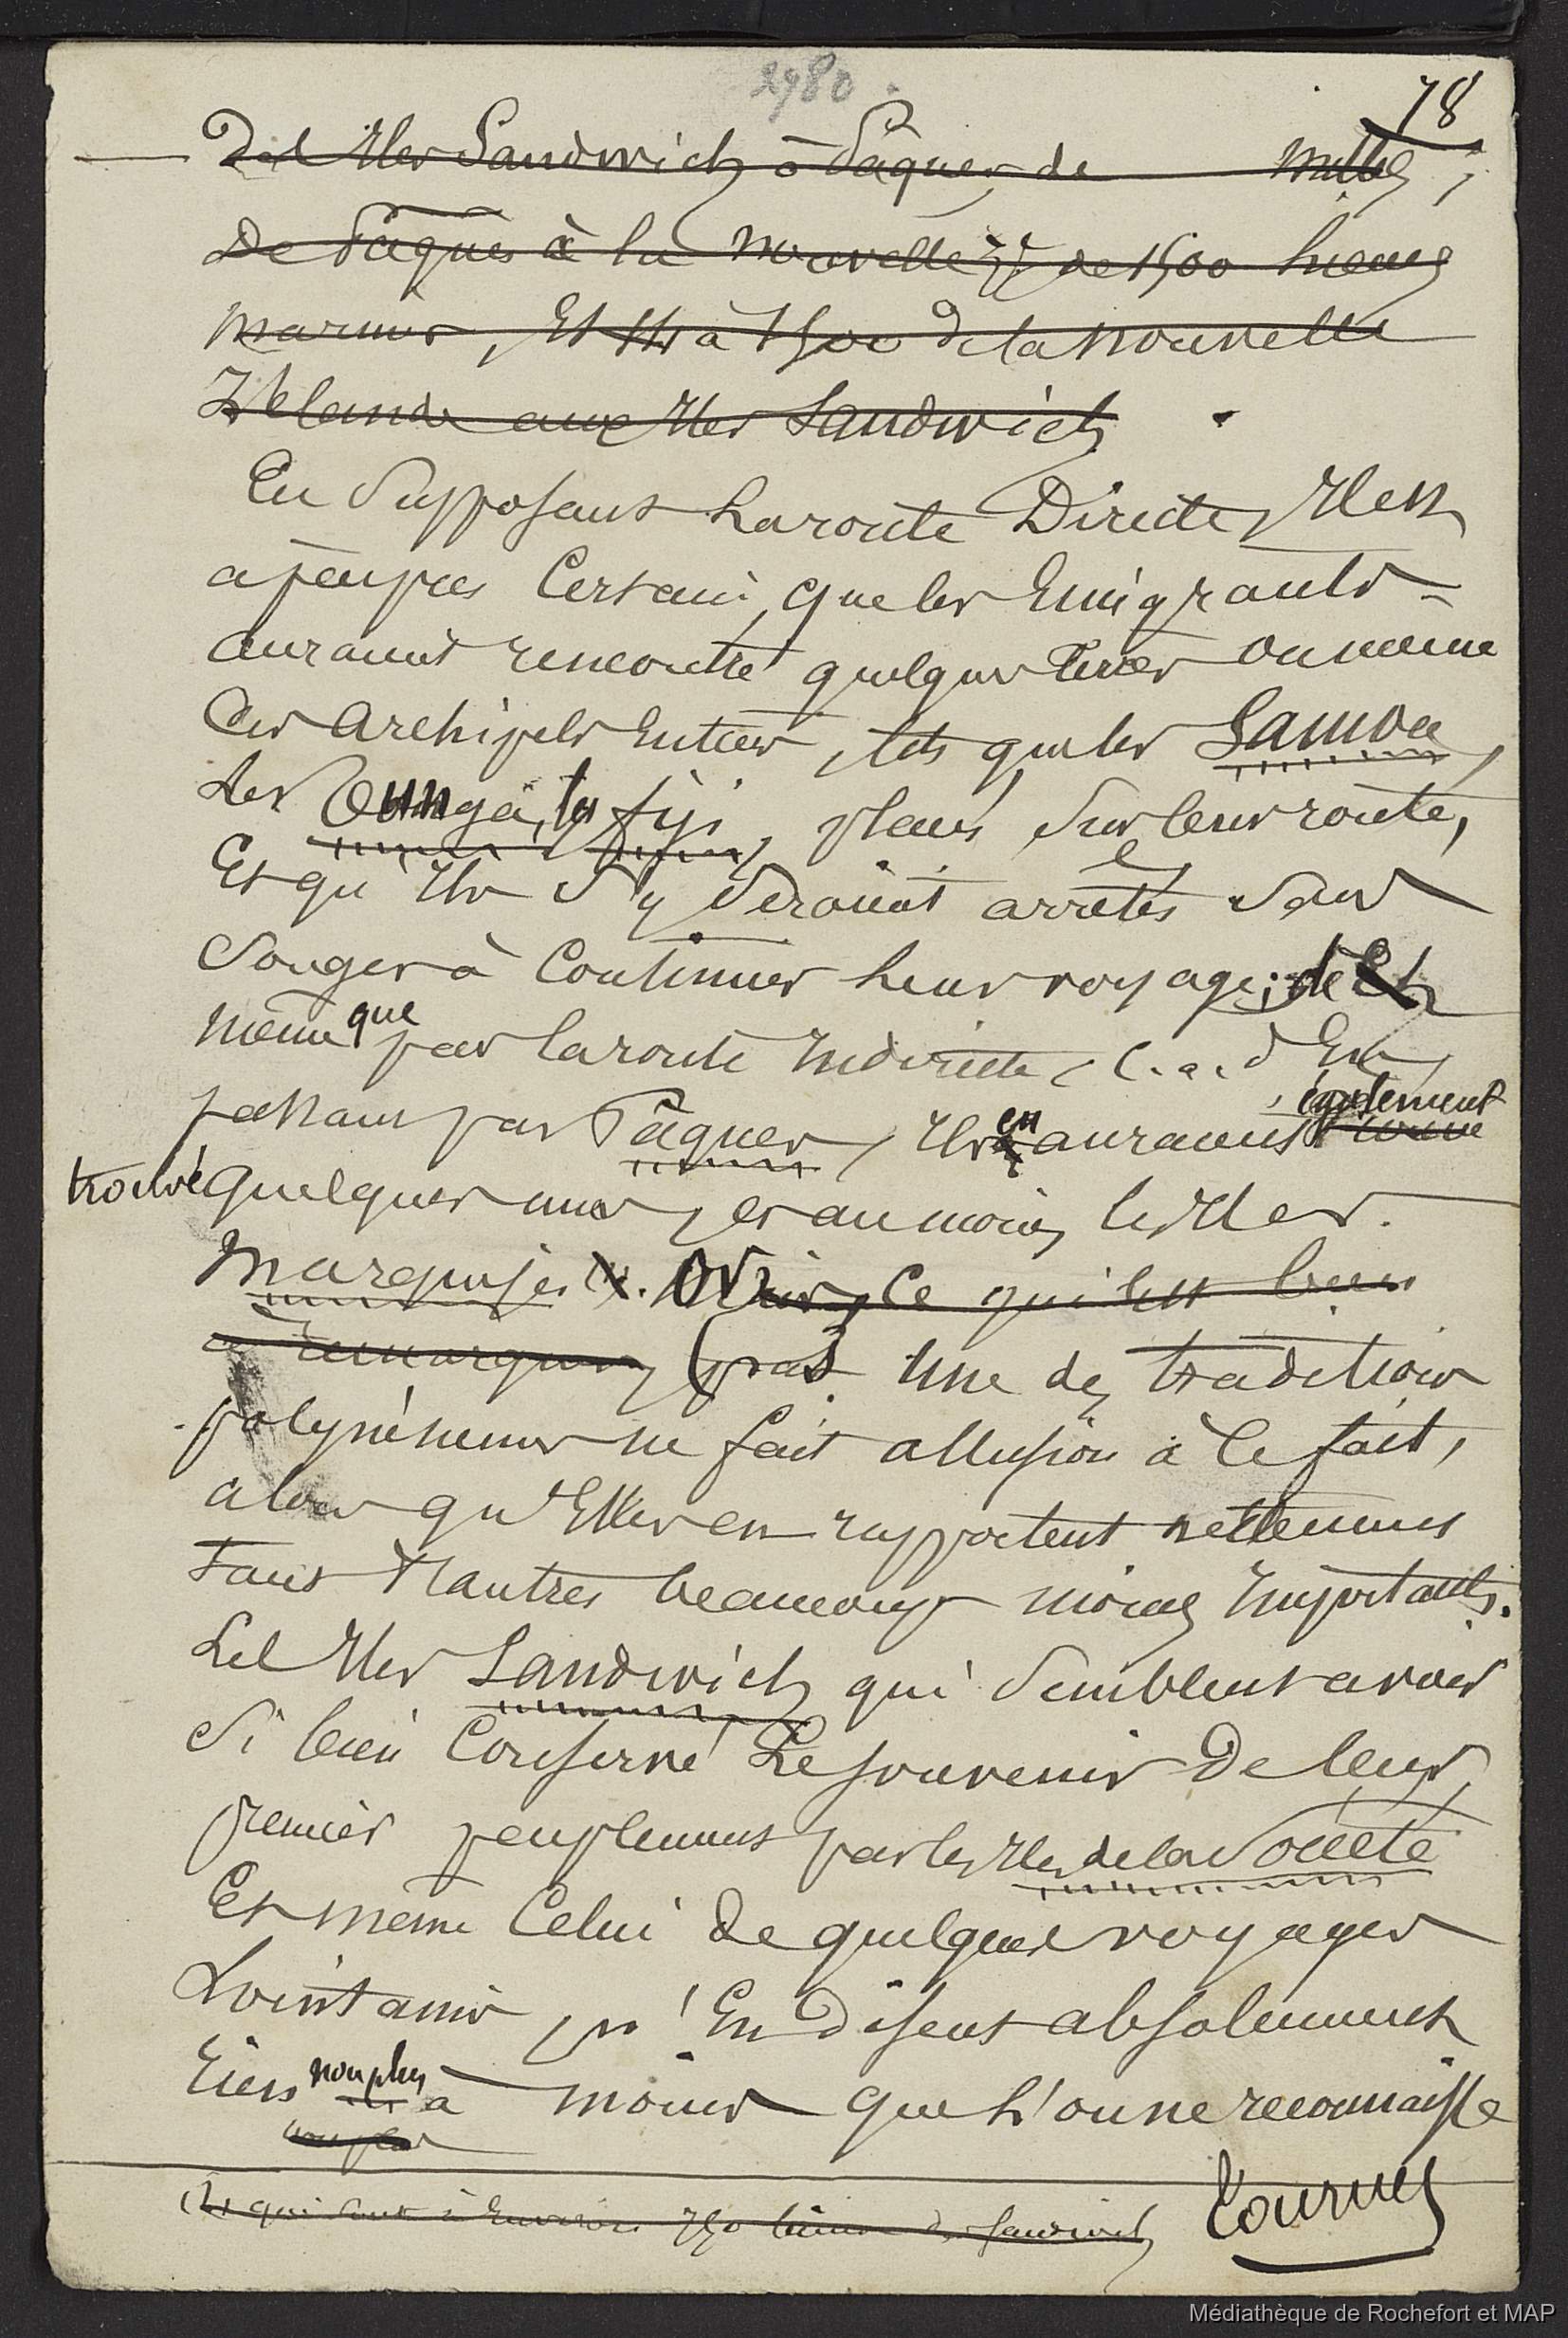 2980
78
Des Iles Sandwich à Pâques, de milles,
de Pâques à la Nouvelle Zde de 1500 lieues
marines, Et à 1500 de la Nouvelle
Zélande aux Iles Sandwich.
En Supposant La route Directe, Il est
à peu près Certain, que les Emigrants
auraient rencontré quelques terres ou même
des Archipels Entiers, tels que les Samoa,
Les Tounga, les fiji, placés Sur leur route,
Et qu'Ils S'y Seraient arrêtés Sans
Songer à Continuer Leur voyage; de
même que par la route Indirecte, C. a. d En
passant par Pâques, Ils en auraient également
trouvé quelques unes, et au moins les Iles.
Marquises (1). Or, Ce qui est bien
à remarquer, pas Une des traditions
polynésiennes ne fait allusion à Ce fait,
alors qu'Elles en rapportent nettement
tant d'autres beaucoup moins Importants.
Les Iles Sandwich qui Semblent avoir
Si bien Conservé Le souvenir De leur
premier peuplement par les Iles de la Société
Et même Celui de quelques voyages
Lointains, n'En Disent absolument
rien non plus à moins que L'on ne reconnaisse
non plus
(1) qui sont à Environ 750 lieues des Sandwich
Tournez
Médiathèque de Rochefort et MAP